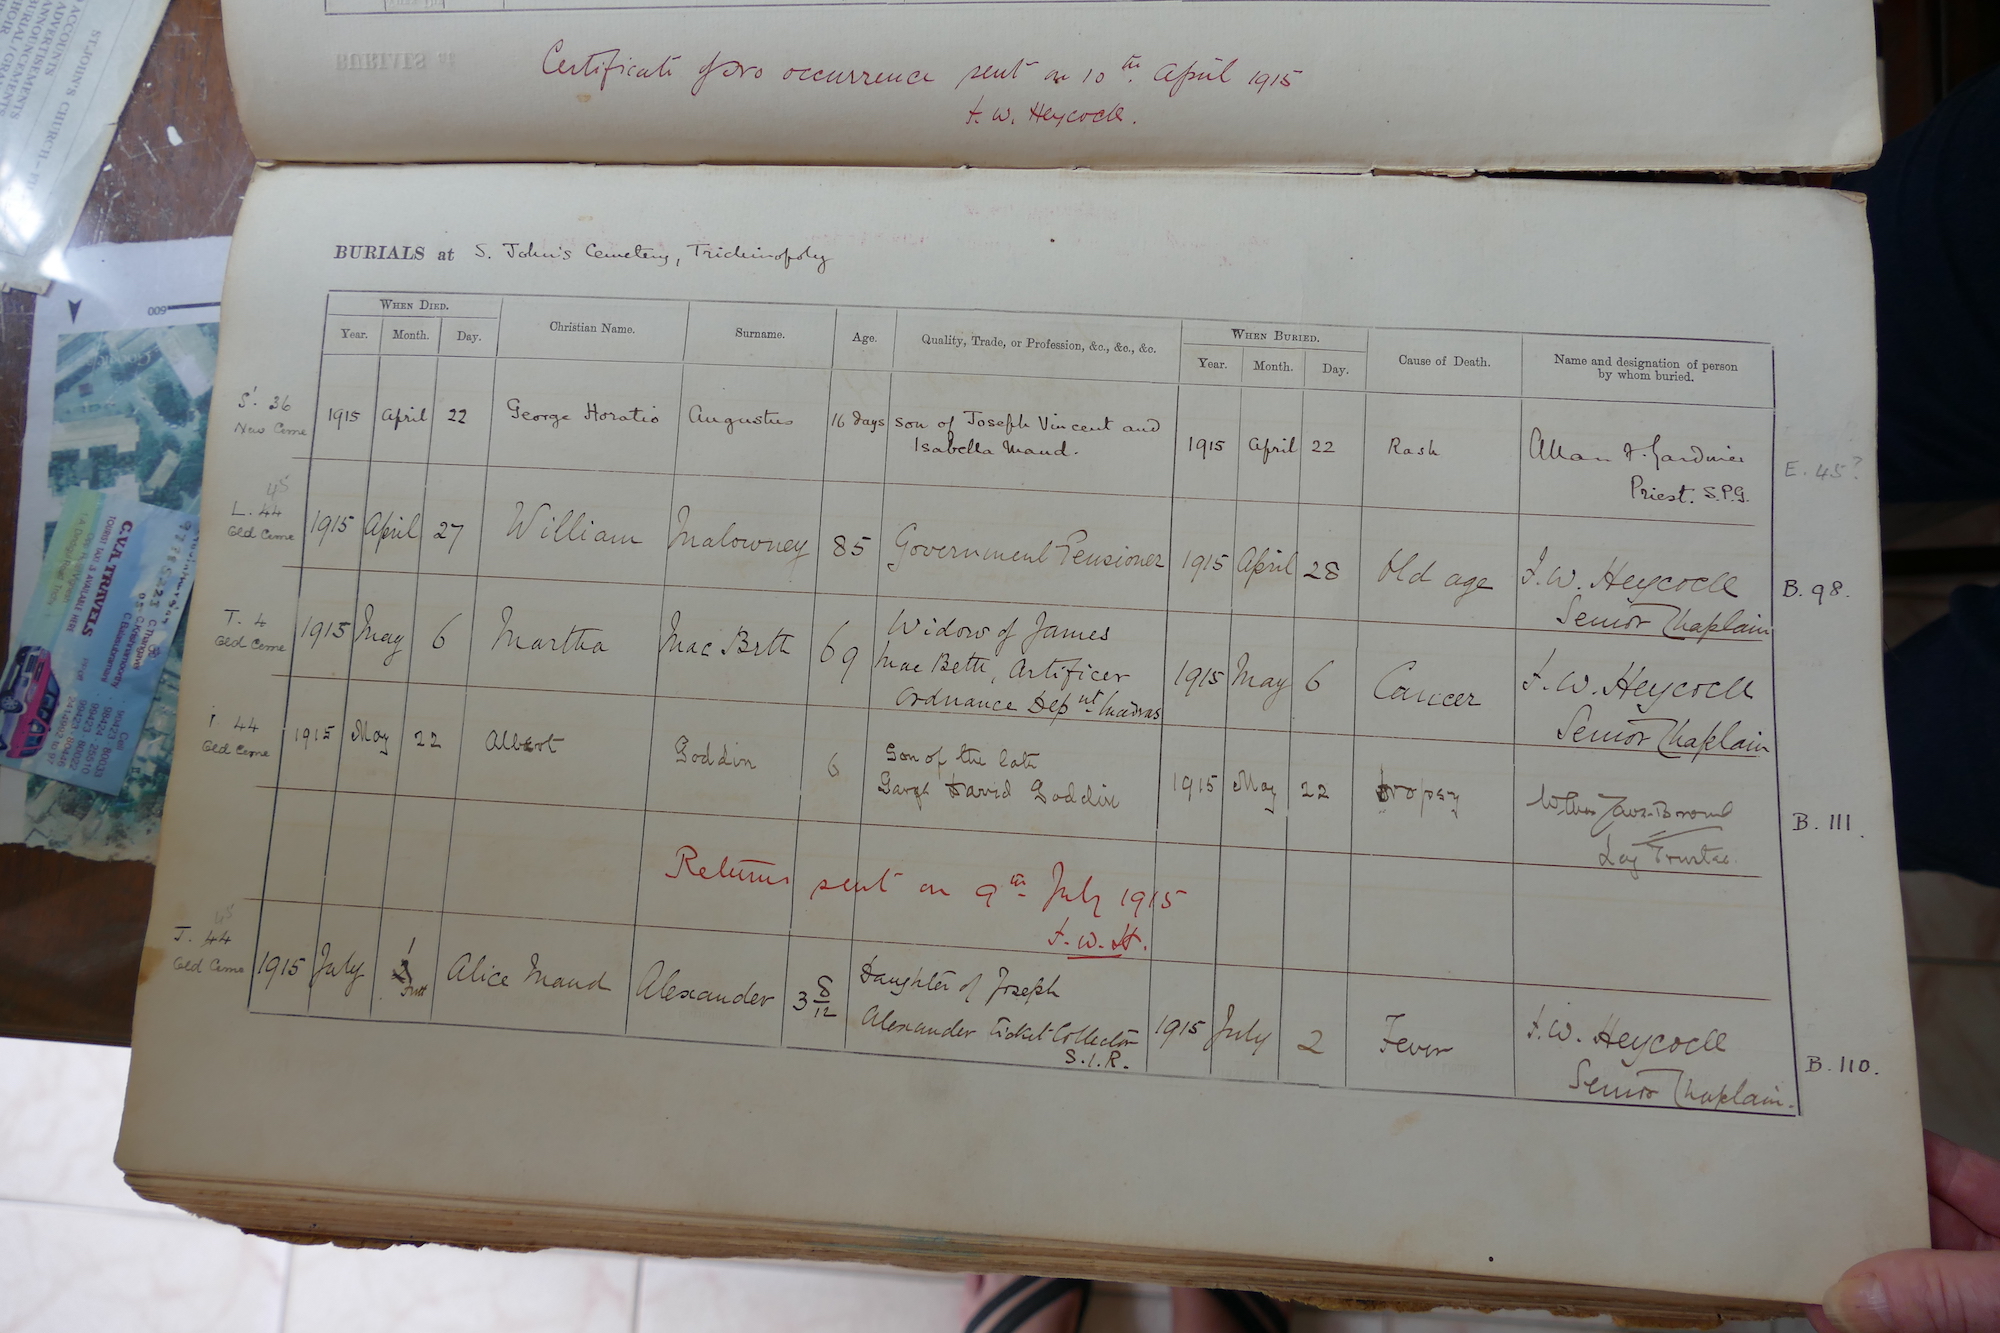 Certificate of no occurrence sent on 10th. April 1915
F. W. Heycock.
BURIALS at S. John's Cemetery, Trichinopoly
WHEN DIED.
Year. Month. Day. Christian Name. Surname. Age. Quality, Trade, or Profession, &c., &c., &c.
WHEN BURIED.
Year. Month. Day. Cause of Death. Name and designation of person
by whom buried.
S. 36
New Ceme
1915 April 22 George Horatio Augustus 16 days son of Joseph Vincent and
Isabella Maud.
1915 April 22 Rash Allan F. Gardiner
Priest. S.P.G.
E. 45?
45
L. 44
Old Ceme
1915 April 27 William Malowney 85 Government Pensioner 1915 April 28 Old age F. W. Heycock
Senior Chaplain
B. 98.
T. 4
Old Ceme
1915 May 6 Martha Mac Beth 69 Widow of James
Mac Beth, Artificer
Ordnance Depnt Madras
1915 May 6 Cancer F. W. Heycock
Senior Chaplain
44
Old Ceme
1915 May 22 Albert Goddin 6 Son of the late
David Goddin
1915 May 22 Dropsy
Lay Trustee.
B. 111.
Returns sent on 9th July 1915
F. W. H.
45
J. 44
Old Ceme
1915 July 1 Alice Maud Alexander 3 8/12 Daughter of Joseph
Alexander Ticket Collector
S.I.R.
1915 July 2 Fever F. W. Heycock
Senior Chaplain.
B. 110.
ST. JOHN'S CHURCH
ACCOUNTS
ADVERTISEMENTS
ANNOUNCEMENTS
BURIAL/GRA
CHOIR
600
C.V.A. TRAVELS
TOURIST TAXI'S AVAILABLE HERE